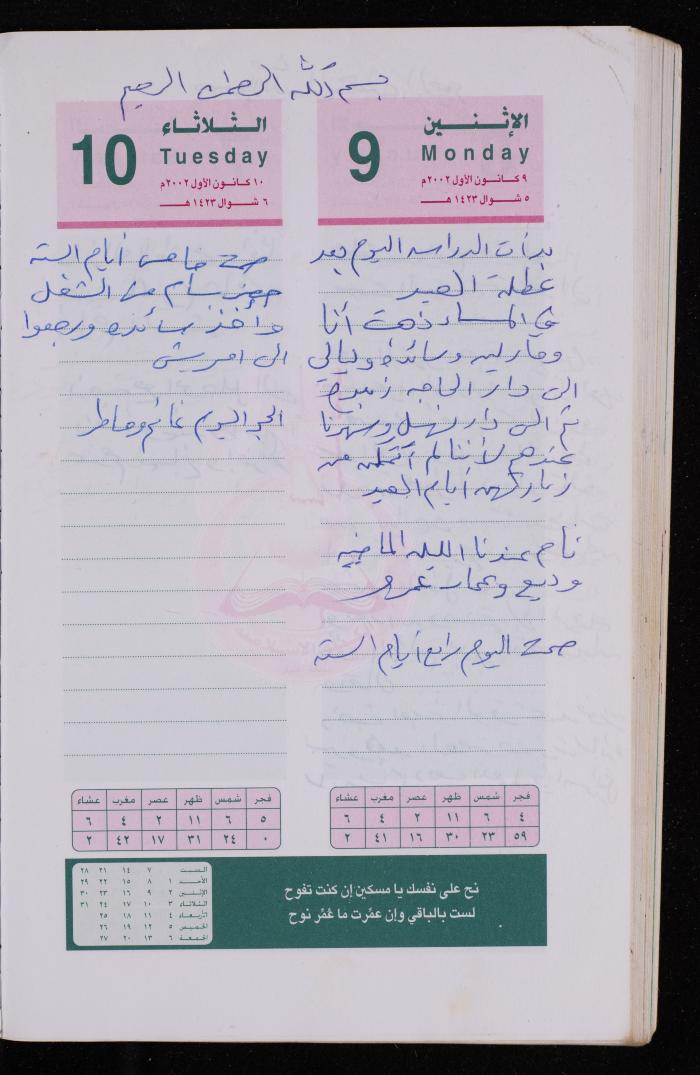 بسم الله الرحمن الرحيم
الإثنين
9
Monday
٩ كانون الأول ٢٠٠٢م
٥ شوال ١٤٢٣ هـ
بدأت الدراسه اليوم بعد
عطلة العيد
في المساء ذهبت أنا
وماريه وسائده وليالي
الى دار الحاجه زبيدة
ثم الى دار نهيل وسهرنا
عندهم لأننا لم نتمكن من
زيارتهن أيام العيد
نام عندنا الليله الماضيه
وديع وعمار
صمت اليوم رابع أيام السته
فجر شمس ظهر عصر مغرب عشاء
٤ ٦ ١١ ٢ ٤ ٦
٥٩ ٢٣ ٣٠ ١٦ ٤١ ٢
الثلاثاء
10
Tuesday
١٠ كانون الأول ٢٠٠٢م
٦ شوال ١٤٢٣ هـ
صمت خامس أيام السته
حضر بسام من الشغل
وأخذ سائده ورجعوا
الى امريش
الجو اليوم غائم وماطر
فجر شمس ظهر عصر مغرب عشاء
٥ ٦ ١١ ٢ ٤ ٦
٠ ٢٤ ٣١ ١٧ ٤٢ ٢
نح على نفسك يا مسكين إن كنت تنوح
لست بالباقي وإن عمّرت ما عُمّر نوح
السبت ٧ ١٤ ٢١ ٢٨
الأحد ١ ٨ ١٥ ٢٢ ٢٩
الإثنين ٢ ٩ ١٦ ٢٣ ٣٠
الثلاثاء ٣ ١٠ ١٧ ٢٤ ٣١
الأربعاء ٤ ١١ ١٨ ٢٥
الخميس ٥ ١٢ ١٩ ٢٦
الجمعة ٦ ١٣ ٢٠ ٢٧